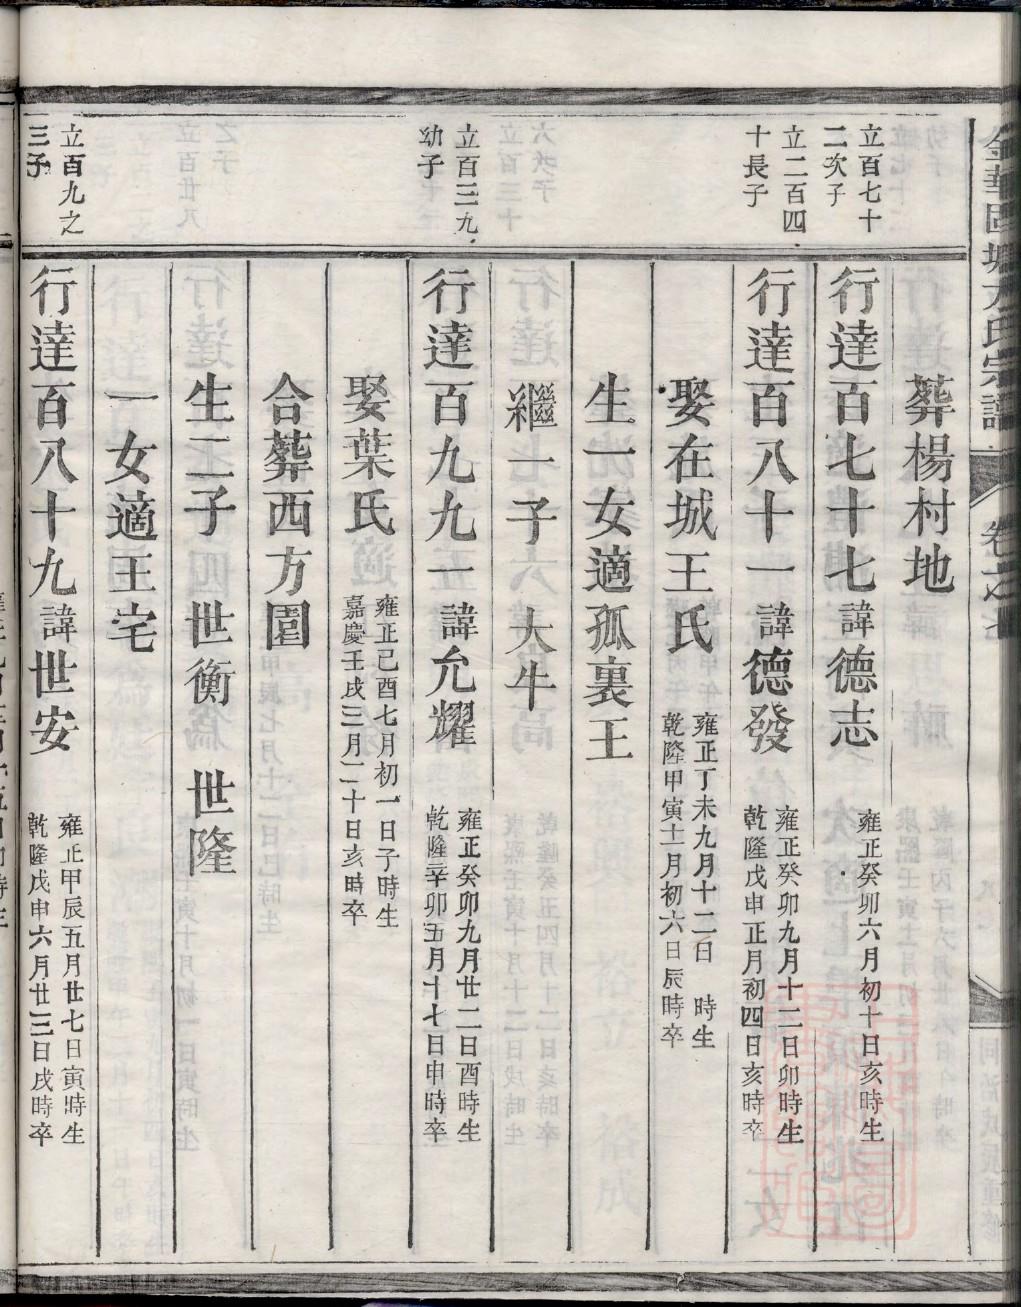 葬楊村地
立百七十
二次子
行達百七十七諱德志
雍正癸卯六月初十日亥時生
立二百四
十長子
行達百八十一諱德發
雍正癸卯九月十二日卯時生
乾隆戊申正月初四日亥時卒
娶在城王氏
雍正丁未九月十二日 時生
乾隆甲寅十一月初六日辰時卒
生一女適孤裏王
繼一子 大牛
立百三九
幼子
行達百九九一諱允耀
雍正癸卯九月廿二日酉時生
乾隆辛卯五月十七日申時卒
娶葉氏
雍正己酉七月初一日子時生
嘉慶壬戌三月二十日亥時卒
合葬西方園
生二子 世衡 世隆
一女適王宅
立百九之
三子
行達百八十九諱世安
雍正甲辰五月廿七日寅時生
乾隆戊申六月廿三日戌時卒